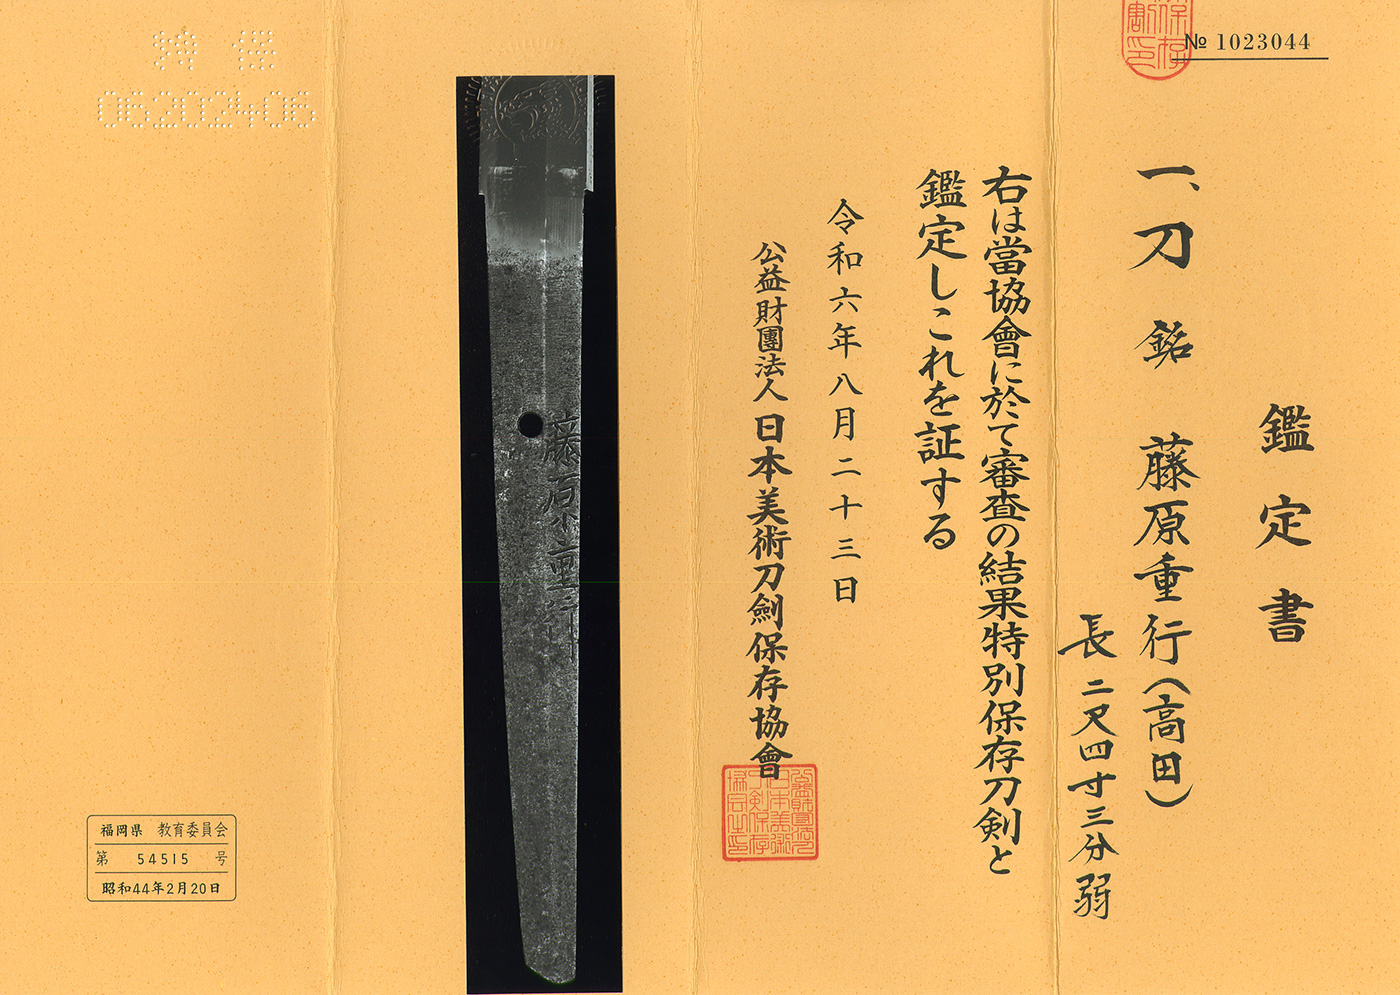 № 1023044
鑑定書
一、刀 銘 藤原重行(高田)
長 二尺四寸三分弱
右は當協會に於て審査の結果特別保存刀剣と
鑑定しこれを証する
令和六年八月二十三日
公益財團法人 日本美術刀劍保存協會
藤原重行
特 保
06202406
福岡県 教育委員会
第 54515 号
昭和44年2月20日